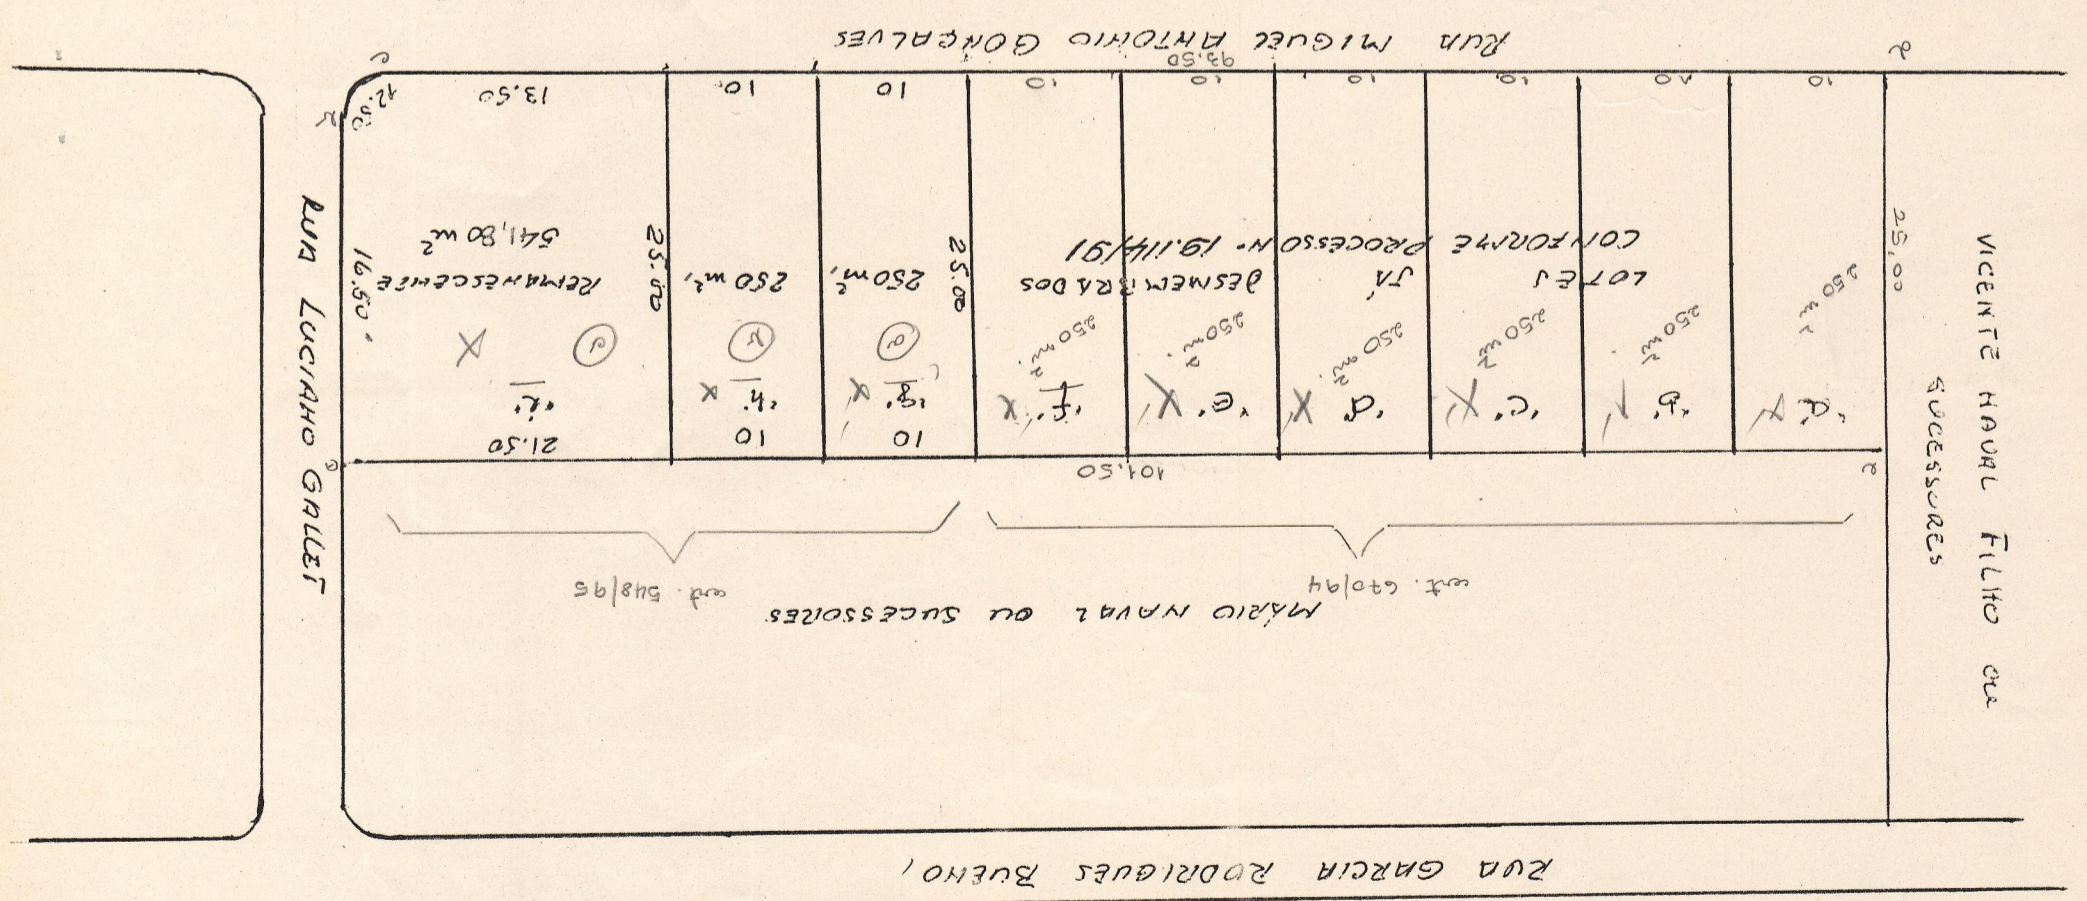 RUA GARCIA RODRIGUES BUENO,
MÁRIO NAVAL OU SUCESSORES
cert. 670/94
cert. 548/95
101.50
"a"
"b"
"c"
"d"
"e"
"f"
"g"
"h"
"i"
10
10
21.50
250 m²
250 m²
250 m²
250 m²
250 m²
250 m²
LOTES JÁ DESMEMBRADOS
CONFORME PROCESSO Nº 19.114/91
250 m²,
250 m²,
REMANESCENTE
541,80 m²
25,00
25.00
25.00
16.50
10
10
10
10
10
10
10
10
13.50
12.50
93,50
RUA MIGUEL ANTONIO GONÇALVES
RUA LUCIANO GALLET
VICENTE NAVAL FILHO OU
SUCESSORES